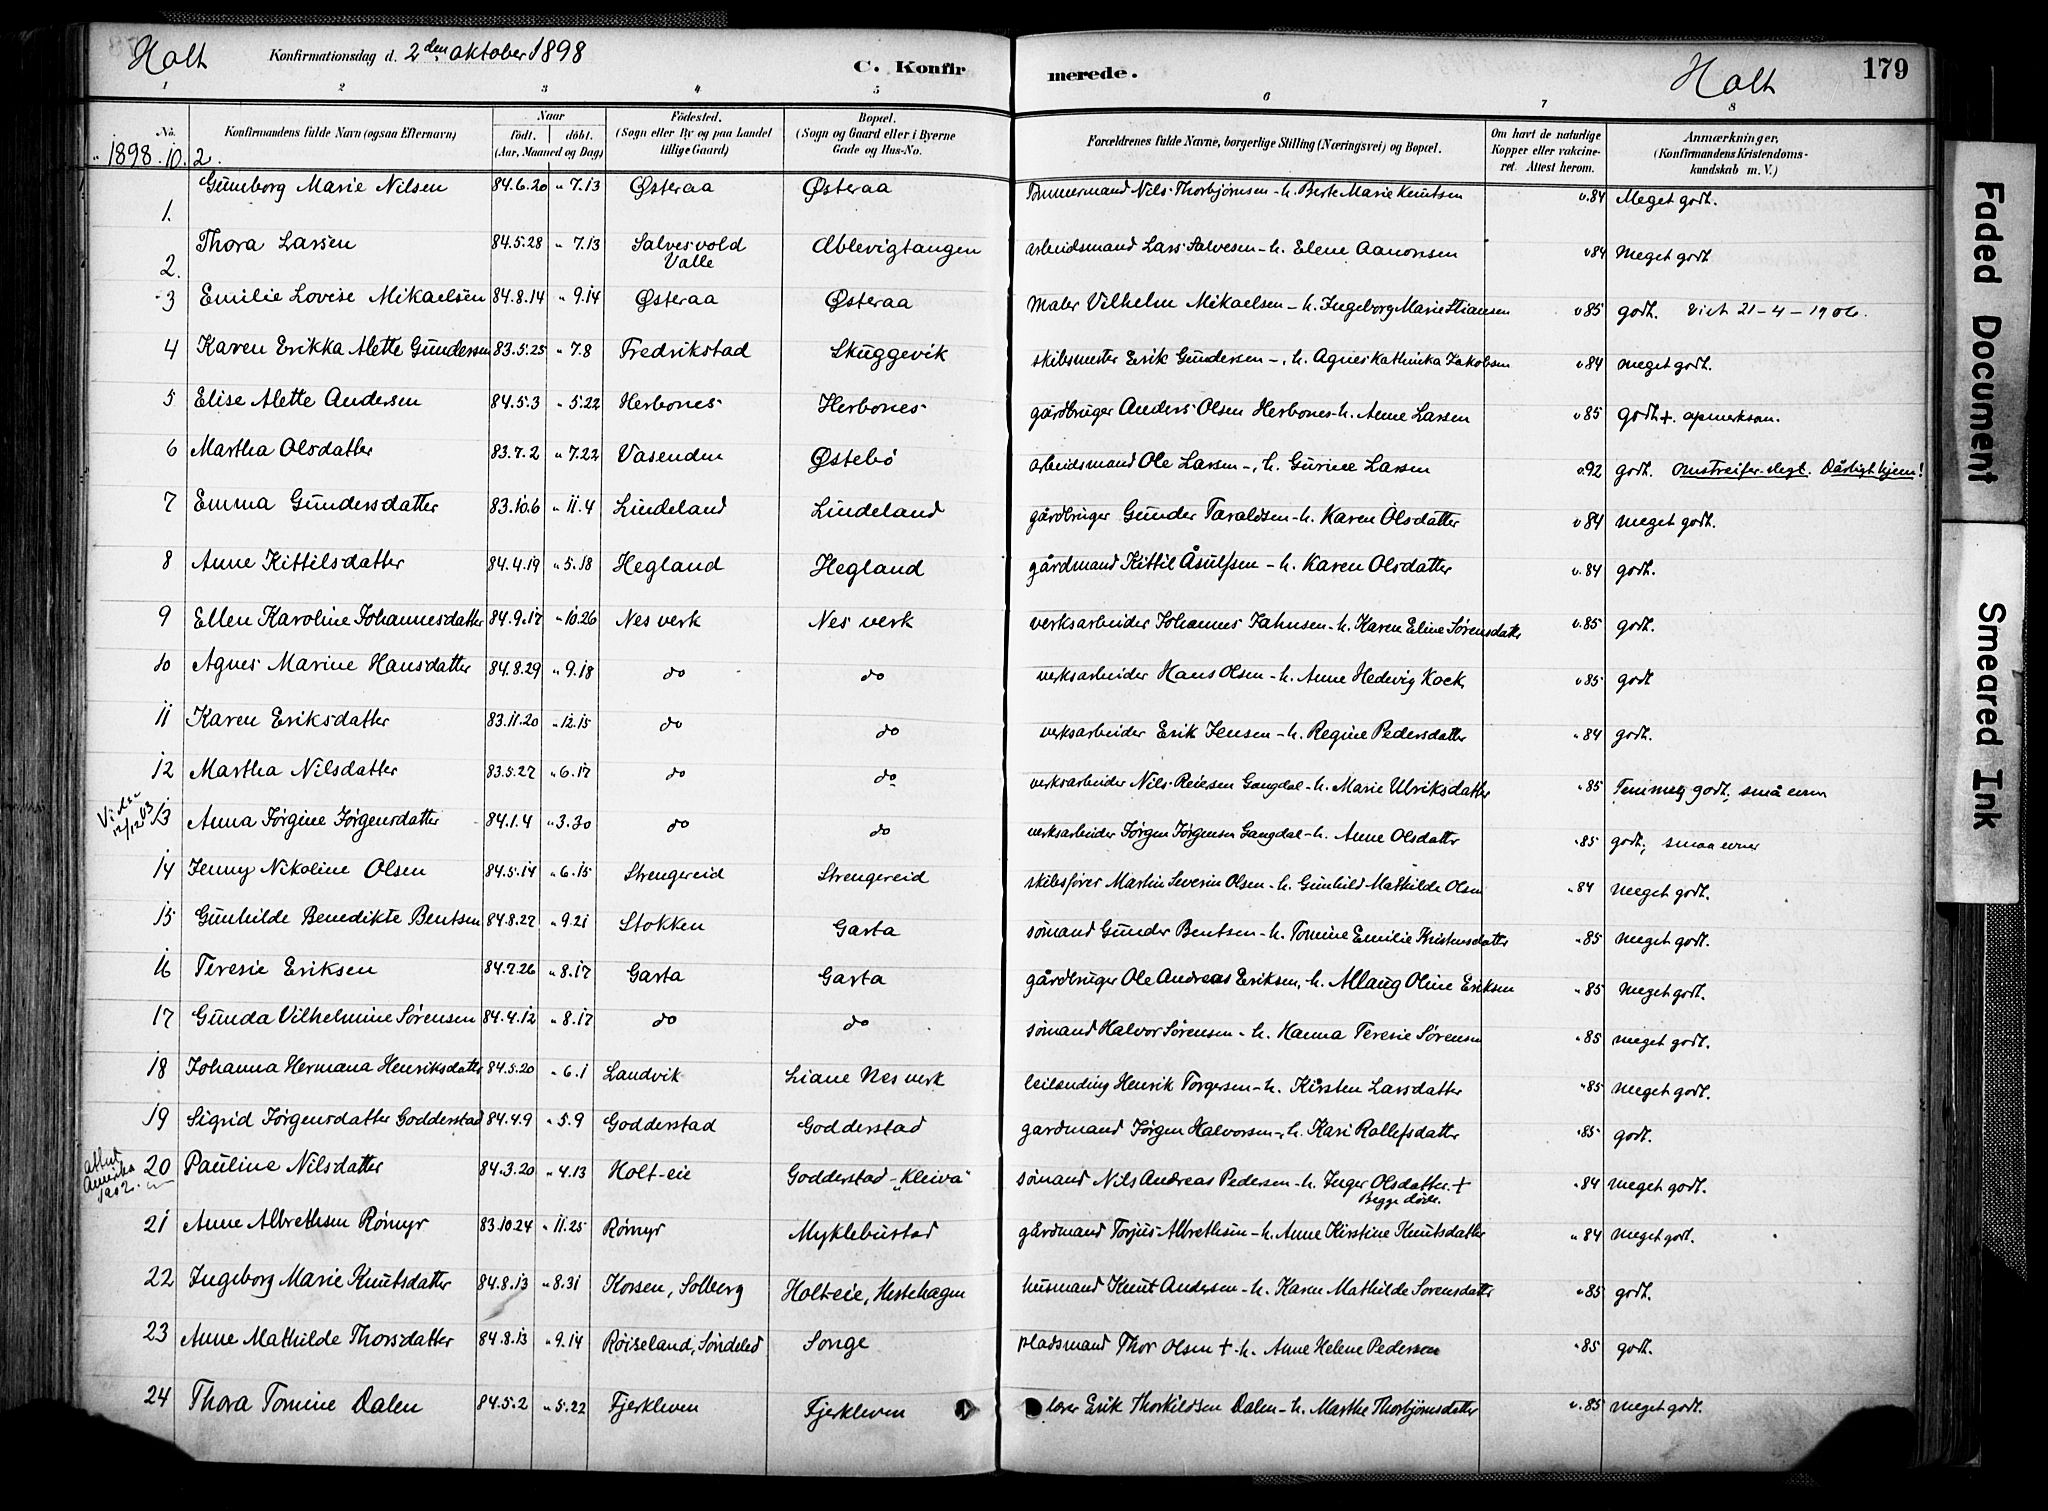 Holt Konfirmationsdag d. 2den oktober 1898 C. Konfirmerede. Holt 179
1 2 3 4 5 6 7 8
No. Konfirmandens fulde Navn (ogsaa Efternavn) Naar født. døbt. (Aar, Maaned og Dag) Fødested. (Sogn eller By og paa Landet tillige Gaard) Bopæl. (Sogn og Gaard eller i Byerne Gade og Hus-No. Forældrenes fulde Navne, borgerlige Stilling (Næringsvei) og Bopæl. Om havt de naturlige Kopper eller vakcineret. Attest herom. Anmærkninger, (Konfirmandens Kristendomskundskab m. V.)
1898. 10. 2.
1. Gunborg Marie Nilsen 84.6.20 " 7.13 Østeraa Østeraa Tømmermand Nils Thorbjørnsen - h. Berte Marie Knutsen v.84 Meget godt.
2. Thora Larsen 84.5.28 " 7.13 Salvesvold Valle Ablevigtangen arbeidsmand Lars Salvesen - h. Elene Aanonsen v84 Meget godt.
3 Emilie Lovise Mikaelsen 84.8.14 " 9.14 Østeraa Østeraa Maler Vilhelm Mikaelsen - h. Ingeborg Marie Stiansen v85 godt. Viet 21-4-1906.
4 Karen Erikka Alette Gundersen 83.5.25 " 7.8 Fredrikstad Skuggevik skibsmester Erik Gundersen -, h. Agnes Kathinka Jakobsen v84 meget godt.
5 Elise Alette Andersen 84.5.3 " 5.22 Herbones Herbones gårdbruger Anders Olsen Herbones - h. Anne Larsen v85 godt+. opmerksom.
6 Martha Olsdatter 83.7.2 " 7.22 Vasenden Østebø arbeidsmand Ole Larsen -, h. Gurine Larsen v.92 godt. Omstreifer-slegt. Dårligt hjem!
7 Emma Gundersdatter 83.10.6 " 11.4 Lindeland Lindeland gårdbruger Gunder Taraldsen - h. Karen Olsdatter v84 meget godt.
8 Anne Kittilsdatter 84.4.19 " 5.18 Hegland Hegland gårdmand Kittil Åsulfsen - h. Karen Olsdatter v.84 godt.
9 Ellen Karoline Johannesdatter 84.9.17 " 10.26 Nes verk Nes verk verksarbeider Johannes Jahnsen - h. Karen Eline Sørensdatter v.85 godt.
10 Agnes Marine Hansdatter 84.8.29 " 9.18 do do verksarbeider Hans Olsen - h. Anne Hedevig Kock v85 godt
11 Karen Eriksdatter 83.11.20 " 12.15 do do verksarbeider Erik Jensen - h. Regine Pedersdatter " 84 godt.
12 Martha Nilsdatter 83.5.27 " 6.17 do do verksarbeider Nils Reiersen Gangdal - h. Marie Ulriksdatter " 85 Temmeg godt, små evner
12/12 03 13 Anna Jørgine Jørgensdatter 84.1.4 " 3.30 do do verksarbeider Jørgen Jørgensen Gangdal - h. Anne Olsdatter " 85 godt; smaa evner
14 Jenny Nikoline Olsen 84.5.14 " 6.15 Strengereid Strengereid skibsfører Martin Severin Olsen - h. Gunhild Mathilde Olsen " 84 Meget godt.
15 Gunhilde Benedikte Bentsen 84.8.27 " 9.21 Stokken Garta sømand Gunder Bentsen - h. Tomine Emilie Kristensdatter " 85 Meget godt.
16 Teresie Eriksen 84.7.26 " 8.17 Garta Garta gårdbruger Ole Andreas Eriksen, h. Allaug Oline Eriksen " 85 Meget godt.
17 Gunda Vilhelmine Sørensen 84.4.12 " 8.17 do do sømand Halvor Sørensen - h. Hanna Teresie Sørensen " 85 meget godt.
18 Johanna Hermana Henriksdatter 84.5.20 " 6.1 Landvik Liane Nes verk leilending Henrik Torgersen - h. Kirsten Larsdatter " 85 Meget godt.
19 Sigrid Jørgensdatter Godderstad 84.4.9 " 5.9 Godderstad Godderstad gardmand Jørgen Halvorsen -, h. Kari Rollefsdatter " 85 godt.
attest Amerika 1902. 20 Pauline Nilsdatter 84.3.20 " 4.13 Holt-eie Godderstad - "Kleiva" sømand Nils Andreas Pedersen - h. Inger Olsdatter. + Begge døde. " 84 meget godt.
21 Anne Albrethsen Rømyr 83.10.24 " 11.25 Rømyr Myklebustad gårdmand Torjus Albrethsen - h. Anne Kirstine Knutsdatter " 84 Meget godt.
22 Ingeborg Marie Knutsdatter 84.8.13 " 8.31 Korsen, Solberg Holt-eie, Hestehagen husmand Knut Andersen - h. Karen Mathilde Sorensdatter " 85 godt.
23 Anne Mathilde Thorsdatter 84.8.13 " 9.14 Røiseland, Søndeled Songe pladsmand Thor Olsen + - h. Anne Helene Pedersen " 85 godt.
24 Thora Tomine Dalen 84.5.2 " 5.22 Fjerkleven Fjerkleven lærer Erik Thorkildsen Dalen - h. Marthe Thorbjørnsdatter v.85 Meget godt.
Faded Document
Smeared Ink